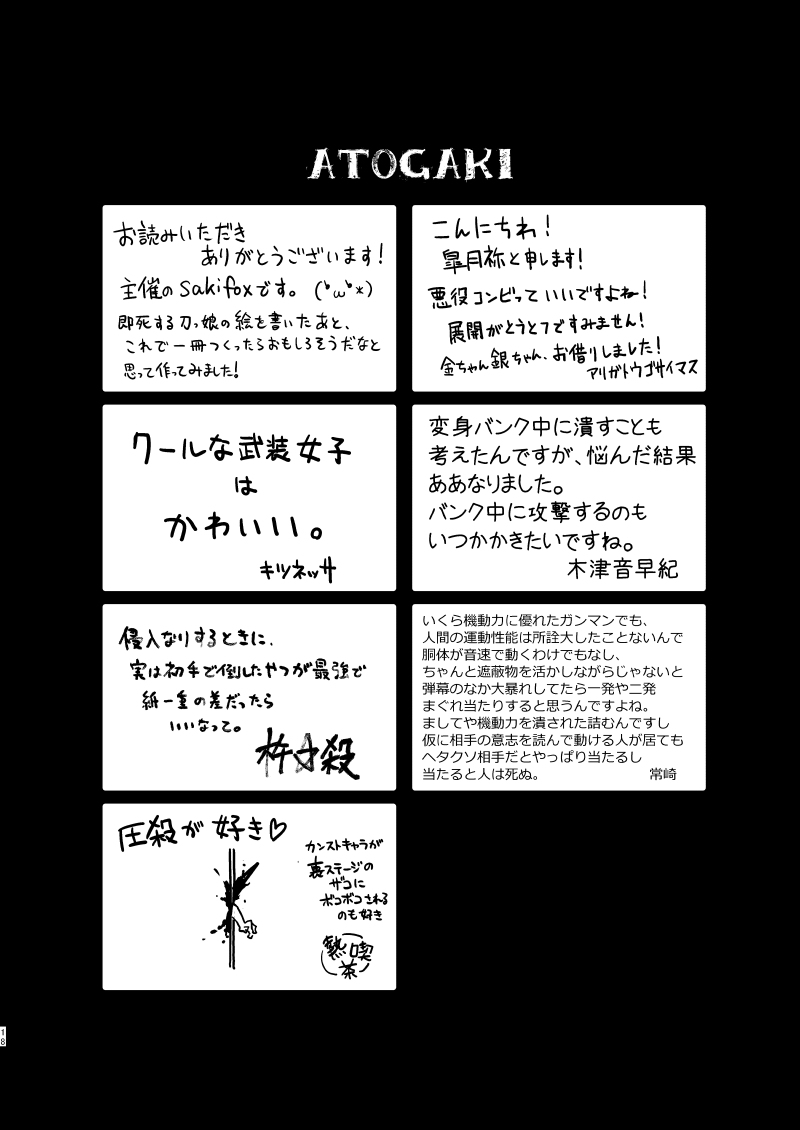 ATOGAKI
お読みいただき
ありがとうございます!
主催のsakifoxです。(•ω•*)
即死する刀っ娘の絵を書いたあと、
これで一冊つくったらおもしろそうだなと
思って作ってみました!
こんにちわ!
皐月祢と申します!
悪役コンビっていいですよね!
展開がとうとつですみません!
金ちゃん銀ちゃん、お借りしました!
アリガトウゴサイマス
クールな武装女子
は
かわいい。
キツネッサ
変身バンク中に潰すことも
考えたんですが、悩んだ結果
ああなりました。
バンク中に攻撃するのも
いつかかきたいですね。
木津音早紀
侵入なりするときに、
実は初手で倒したやつが最強で
紙一重の差だったら
いいなって。
杵☆殺
いくら機動力に優れたガンマンでも、
人間の運動性能は所詮大したことないんで
胴体が音速で動くわけでもなし、
ちゃんと遮蔽物を活かしながらじゃないと
弾幕のなか大暴れしてたら一発や二発
まぐれ当たりすると思うんですよね。
ましてや機動力を潰された詰むんですし
仮に相手の意志を読んで動ける人が居ても
ヘタクソ相手だとやっぱり当たるし
当たると人は死ぬ。
常崎
圧殺が好き♡
カンストキャラが
裏ステージの
ザコに
ボコボコされる
のも好き
熱喫
茶
18